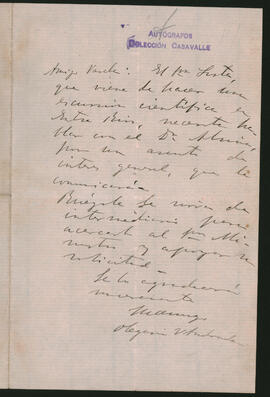 AUTÓGRAFOS
COLECCIÓN CASAVALLE
Amigo Varela: El Sor
que viene de hacer una
escursion científica en
Entre Rios, necesita ha
blar con el Dr
por un asunto de
interes general, que le
comunicará
Ruégole se sirva de
intermediario para
acercarlo al Sor Mi-
nistro y apoyar su
solicitud
Se lo agradecerá
su amigo
Olegario V. Andrade